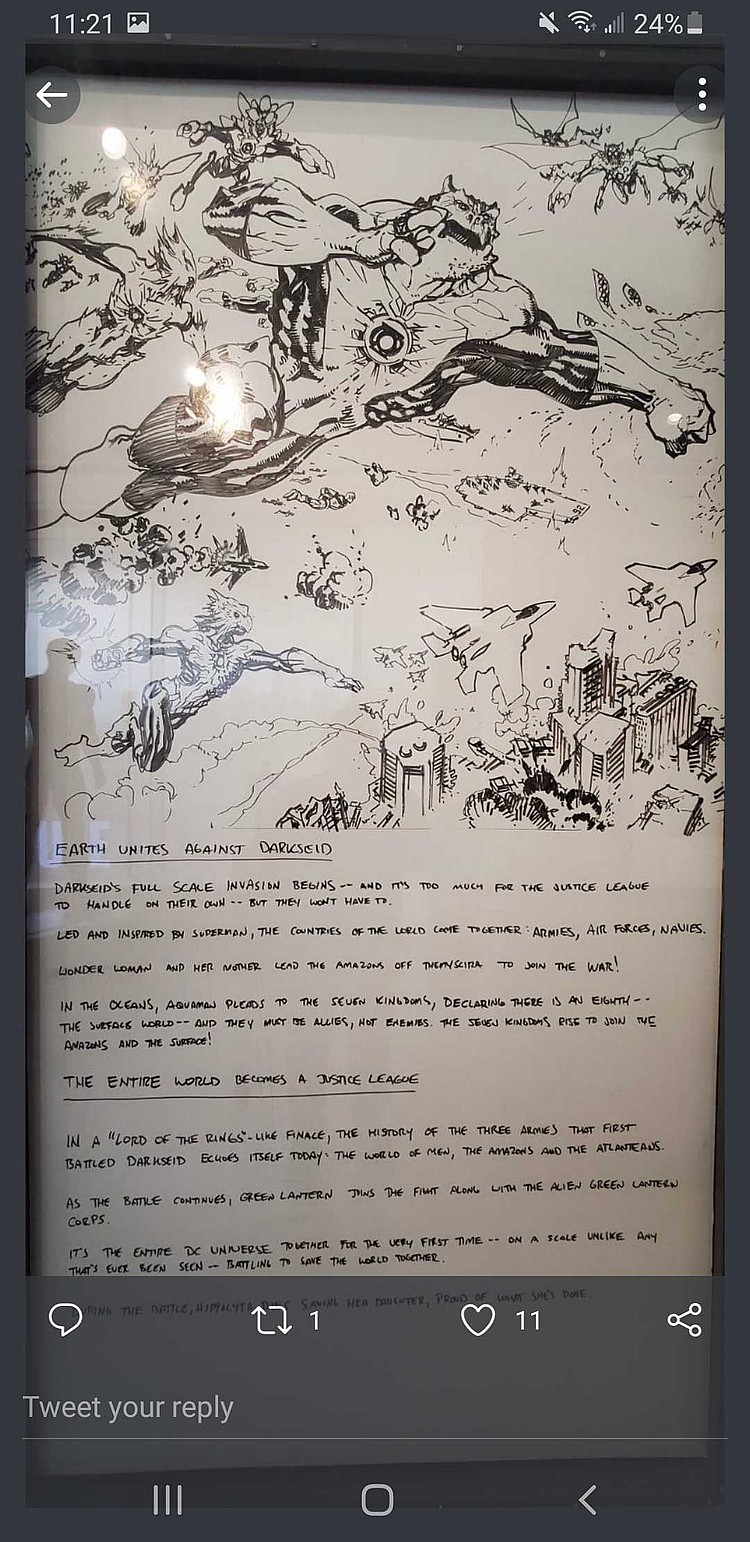 11:21
24%
EARTH UNITES AGAINST DARKSEID
DARKSEID'S FULL SCALE INVASION BEGINS -- AND IT'S TOO MUCH FOR THE JUSTICE LEAGUE
TO HANDLE ON THEIR OWN -- BUT THEY WON'T HAVE TO.
LED AND INSPIRED BY SUPERMAN, THE COUNTRIES OF THE WORLD COME TOGETHER: ARMIES, AIR FORCES, NAVIES.
WONDER WOMAN AND HER MOTHER LEAD THE AMAZONS OFF THEMYSCIRA TO JOIN THE WAR!
IN THE OCEANS, AQUAMAN PLEADS TO THE SEVEN KINGDOMS, DECLARING THERE IS AN EIGHTH --
THE SURFACE WORLD -- AND THEY MUST BE ALLIES, NOT ENEMIES. THE SEVEN KINGDOMS RISE TO JOIN THE
AMAZONS AND THE SURFACE!
THE ENTIRE WORLD BECOMES A JUSTICE LEAGUE
IN A "LORD OF THE RINGS"-LIKE FINALE, THE HISTORY OF THE THREE ARMIES THAT FIRST
BATTLED DARKSEID ECHOES ITSELF TODAY: THE WORLD OF MEN, THE AMAZONS AND THE ATLANTEANS.
AS THE BATTLE CONTINUES, GREEN LANTERN JOINS THE FIGHT ALONG WITH THE ALIEN GREEN LANTERN
CORPS.
IT'S THE ENTIRE DC UNIVERSE TOGETHER FOR THE VERY FIRST TIME -- ON A SCALE UNLIKE ANY
THAT'S EVER BEEN SEEN -- BATTLING TO SAVE THE WORLD TOGETHER.
DURING THE BATTLE, HIPPOLYTA DIES SAVING HER DAUGHTER, PROUD OF WHAT SHE'S DONE.
1
11
Tweet your reply